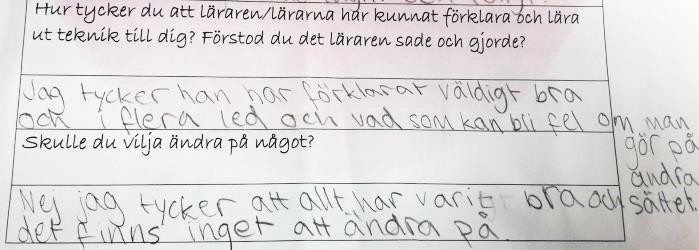 Hur tycker du att läraren/lärarna har kunnat förklara och lära
ut teknik till dig? Förstod du det läraren sade och gjorde?
Jag tycker han har förklarat väldigt bra
och i flera led och vad som kan bli fel om man
gör på
andra
sättet.
Skulle du vilja ändra på något?
Nej jag tycker att allt har varit bra och
det finns inget att ändra på.